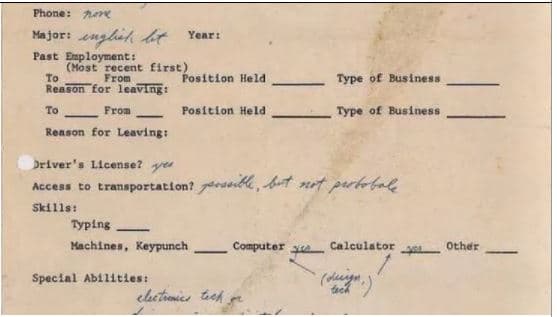 Phone: none
Major: english lit Year:
Past Employment:
(Most recent first)
To ____ From ____ Position Held ____ Type of Business ____
Reason for leaving:
To ____ From ____ Position Held ____ Type of Business ____
Reason for Leaving:
Driver's License? yes
Access to transportation? possible, but not probobale
Skills:
Typing ____
Machines, Keypunch ____ Computer yes Calculator yes Other ____
(design,
tech)
Special Abilities:
electronics tech or